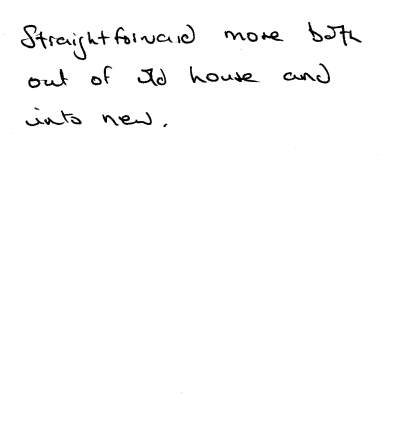 Straightforward move both
out of old house and
into new.